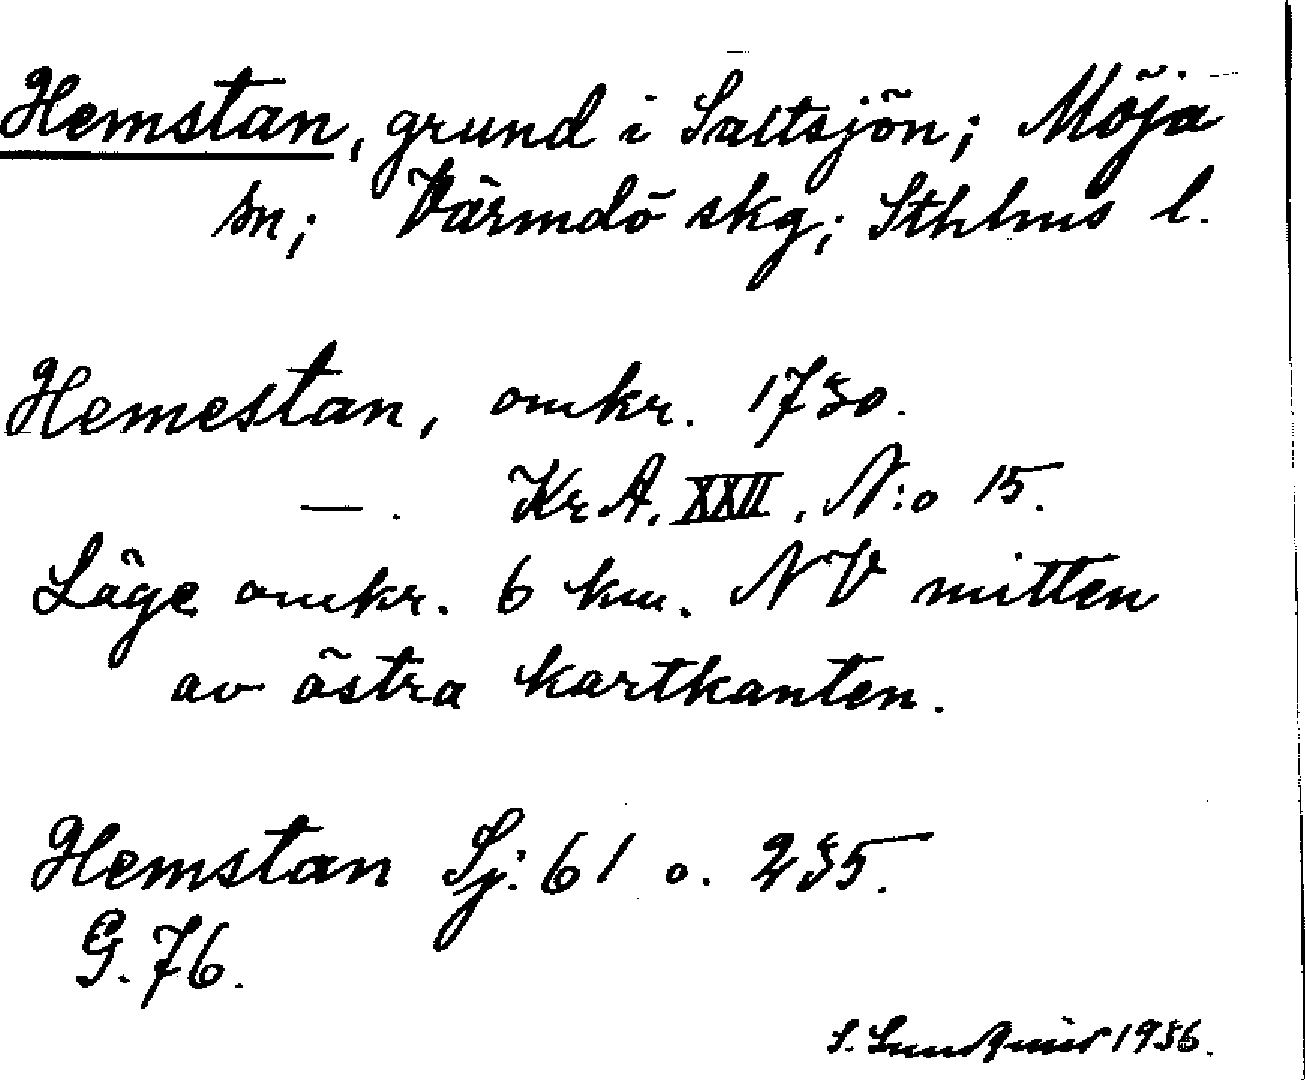 Hemstan, grund i Saltsjön; Möja
sn; Värmdö skg; Sthlms l.
Hemestan, omkr. 1730.
—. Kr A. XXII, N:o 15.
Läge omkr. 6 km. NV mitten
av östra kartkanten.
Hemstan Sj: 61 o. 235.
G. 76.
S. Sundquist 1936.